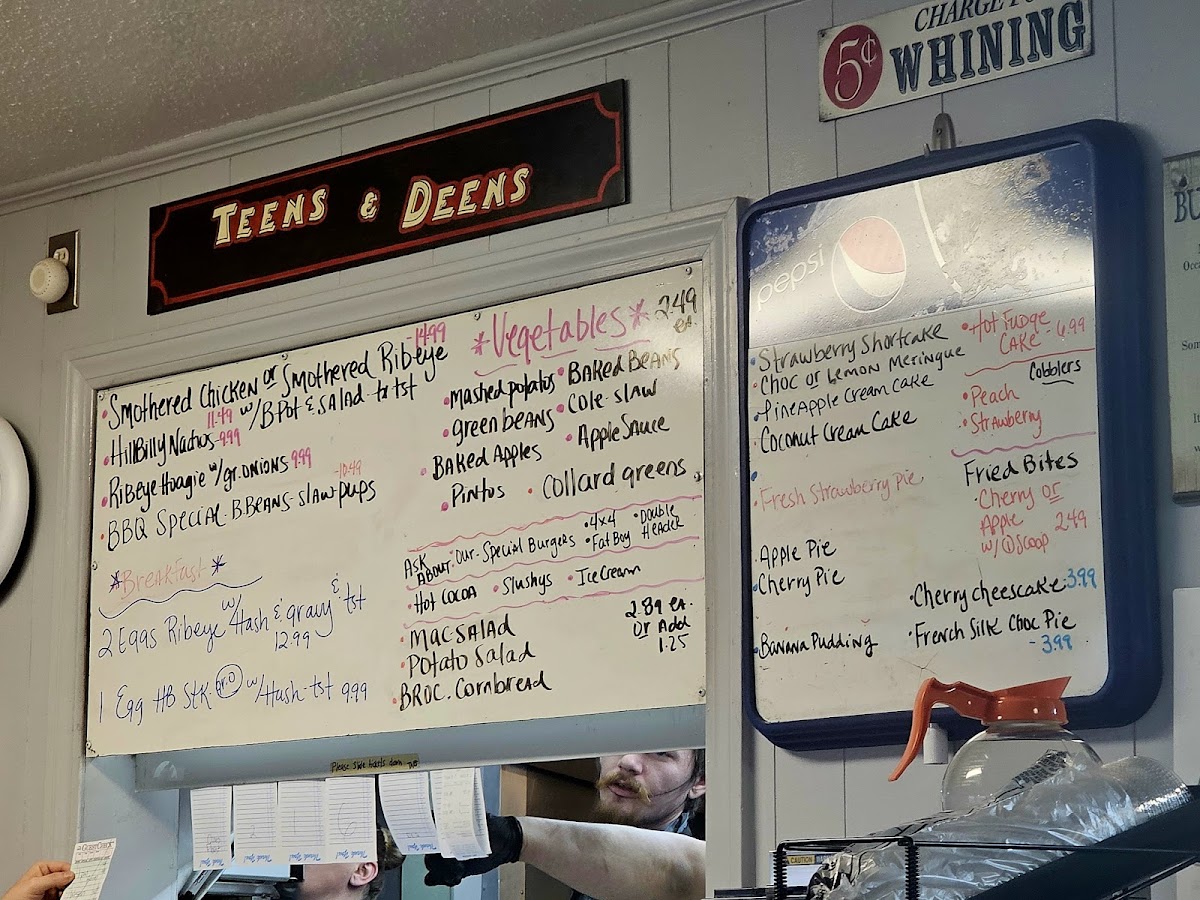 CHARGE
5¢ WHINING
TEENS & DEENS
• Smothered Chicken or Smothered Ribeye 14.99
11.49 w/ B Pot & Salad-tr tst
• HillBilly Nachos - 9.99
• Ribeye Hoagie w/ gr. onions 9.99
• BBQ Special - B Beans - slaw - pups -10.49
*Breakfast*
2 Eggs Ribeye w/ Hash & gravy & tst
12.99
1 Egg HB Stk gr.O w/ Hash - tst 9.99
*Vegetables* 2.49 ea.
• Mashed potatos
• green beans
• Baked Apples
• Pintos
• Baked Beans
• Cole-slaw
• Apple Sauce
• Collard greens
Ask About Our - Special Burgers
• 4x4 • Double Header
• Fat Boy
• Hot Cocoa • Slushys • Ice Cream
• Mac Salad
• Potato Salad
• Broc. Cornbread
2.89 ea.
Or Add
1.25
Please slide tickets down
Thank You!
Thank You!
Thank You!
Thank You!
GUEST CHECK
pepsi
• Strawberry Shortcake
• Choc or Lemon Meringue
• Pineapple Cream Cake
• Coconut Cream Cake
• Fresh Strawberry pie
• Apple Pie
• Cherry Pie
• Banana Pudding
• Hot Fudge Cake - 6.99
Cobblers
• Peach
• Strawberry
Fried Bites
• Cherry or
Apple 2.49
w/ ① Scoop
• Cherry cheescake 3.99
• French Silk Choc Pie
- 3.99
CAUTION